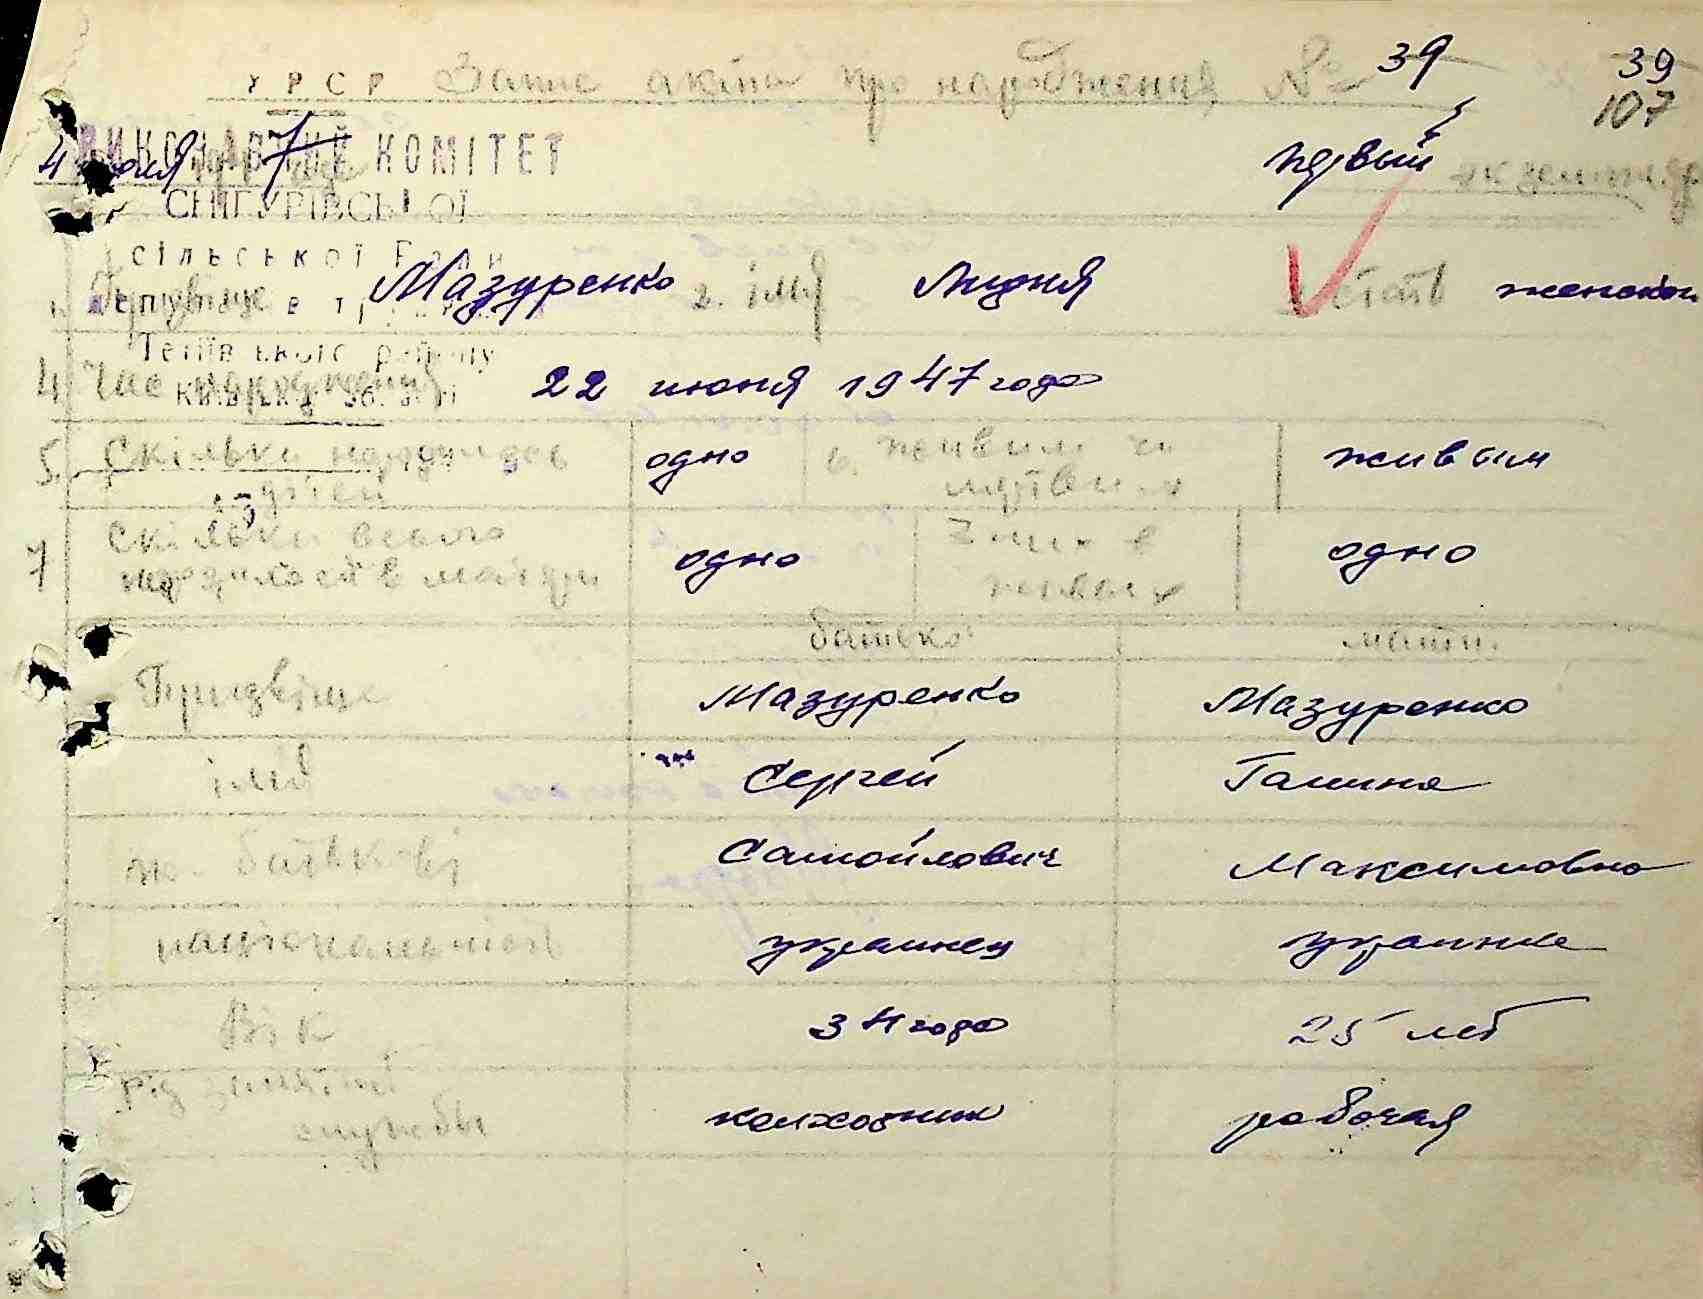 УРСР Запис акта про народження № 39 39
107
ВИКОНАВЧИЙ КОМІТЕТ
4 июля 7 первый екземпляр
СНІГУРІВСЬКОЇ
сільської Ради
1. Прізвище Мазуренко 2. імя Лидия стать женский
депутатів трудящих
Тетіївського району
4 Час народження 22 июня 1947 года
Київської області
5. Скільки народилось дітей одно 6. живим чи мертвим живым
7 Скільки всього народилось в матері одно З них в живых одно
батько мати
Прізвіще Мазуренко Мазуренко
імя Сергей Галина
по батькові Самойлович Максимовна
національність украинец украинка
Вік 34 года 25 лет
Рід занять служби колхозник рабочая